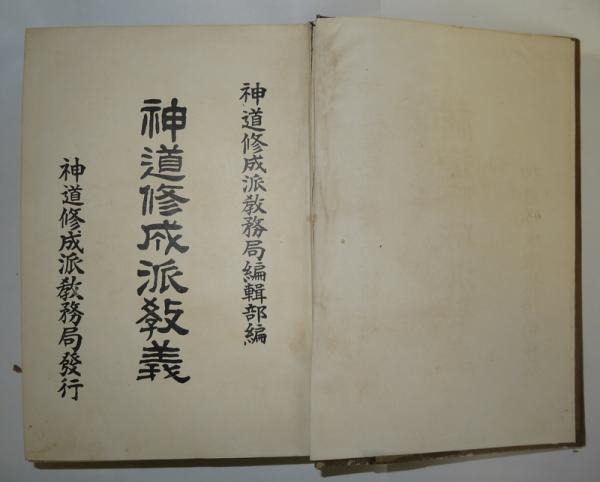 神道修成派教務局編輯部編
神道修成派教義
神道修成派教務局發行